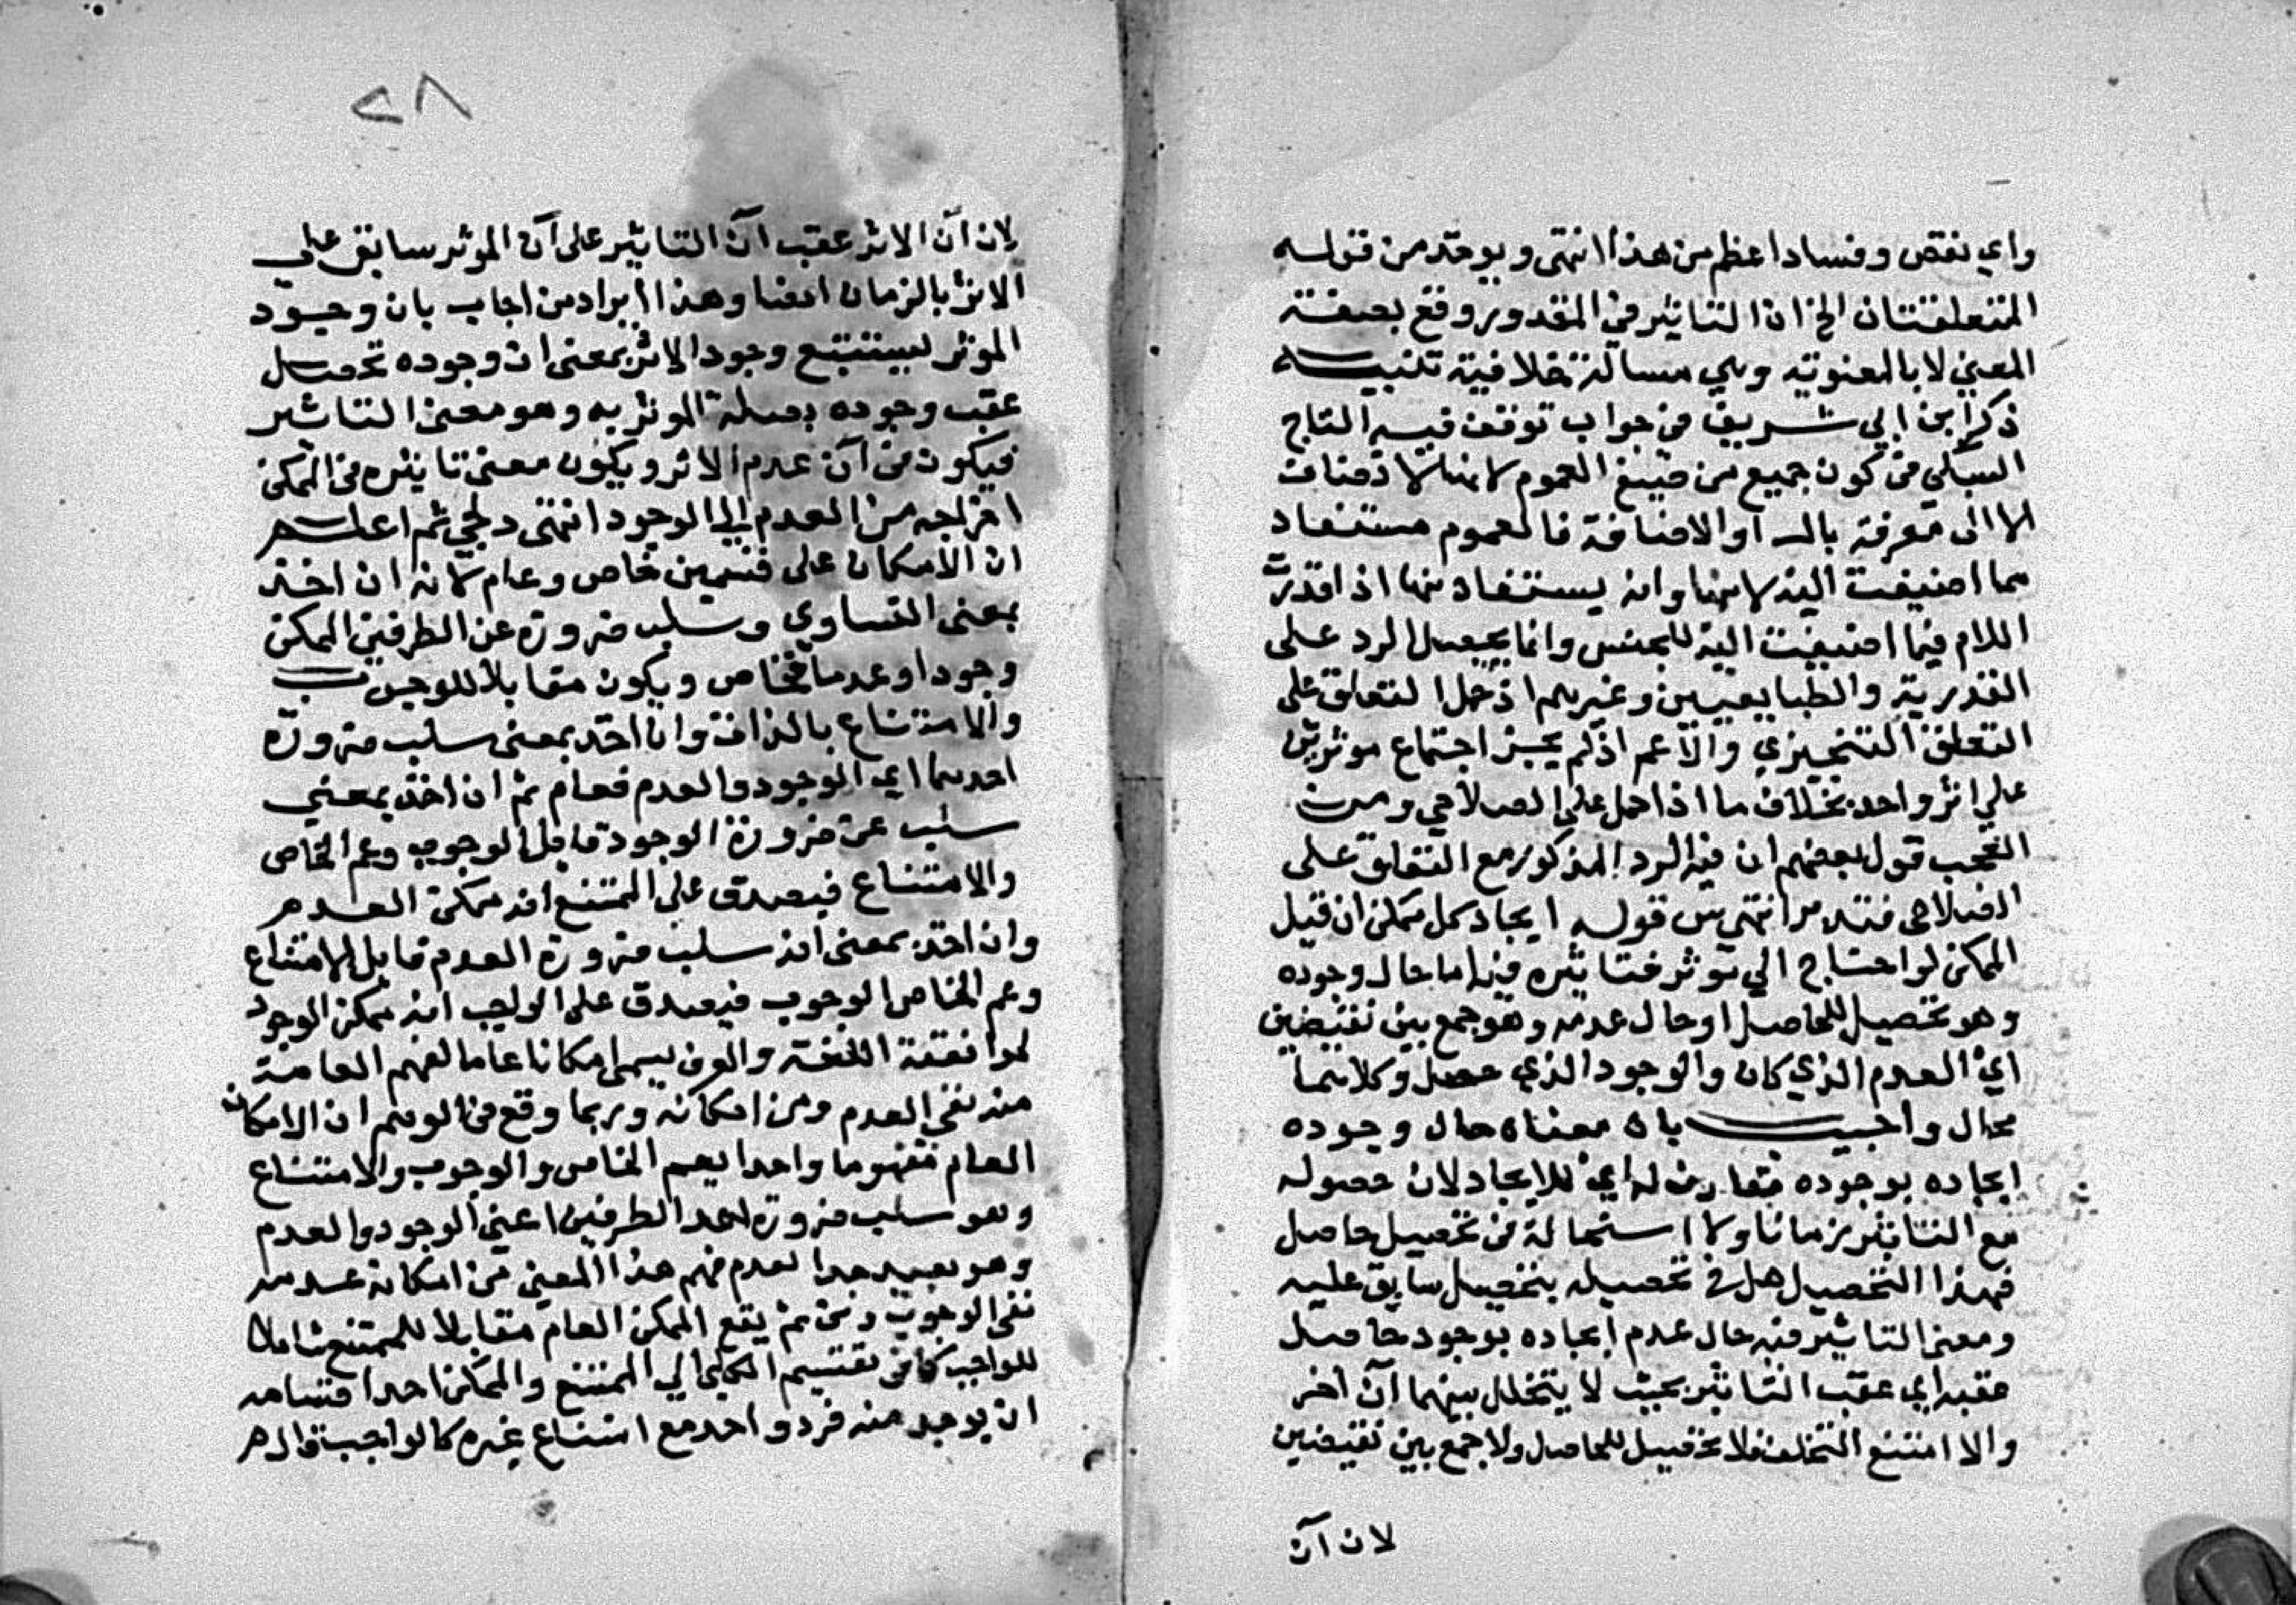 واي نقص وفسادا عظم من هذا انتهى ويوخذ من قوله
المتعلقتان الخ ان التاثير في المقدور وقع بصفة
المعني لا بالمعنوية وهي مسالة خلافية تنبيه
ذكر ابن ابي شريف في جواب توقف فيه التاج
السبكي في كون جميع من صيغ العموم لانها لا تضاف
الا الى معرفة بال او الاضافة فالعموم مستفاد
مما اضيفت اليه لا منها وانه يستفاد منها اذا قدرت
اللام فيما اضيفت اليه للجنس وانما يحصل الرد على
القدرية والطبايعيين وغيرهم اذ حمل التعلق على
التعلق التنجيزي والاعم اذ لم يجز اجتماع موثرين
على اثر واحد بخلاف ما اذا حمل على الصلاحي ومن
العجب قول بعضهم ان فيه الرد المذكور مع التعلق على
الصلاحي فتدبر انتهى قوله ايجاد كل ممكن ان قيل
الممكن لو احتاج الي موثر فتاثيره فيه اما حال وجوده
وهو تحصيل للحاصل او حال عدمه وهو جمع بين نقيضين
اي العدم الذي كان والوجود الذي حصل وكلاهما
محال واجيب بان معناه حال وجوده
ايجاده بوجوده مقارن له اي للايجاد لان حصوله
مع التاثير زمانا ولا استحالة في تحصيل حاصل
فهذا التحصيل هل في تحصيله بتحصيل سابق عليه
ومعنى التاثير فيه حال عدم ايجاده بوجود حاصل
عقبه اي عقب التاثير بحيث لا يتخلل بينهما آن اخر
والا امتنع التخلف فلا تحصيل للحاصل ولا جمع بين نقيضين
لان آن
٢٨
لان آن الاثر عقب آن التاثير على آن الموثر سابق على
الاثر بالزمان ايضا وهذا ايراد من اجاب بان وجود
الموثر يستتبع وجود الاثر بمعنى ان وجوده تحصل
عقب وجوده بصلة الموثر به وهو معنى التاثير
فيكون في آن عدم الاثر ويكون معنى تاثيره في الممكن
اخراجه من العدم الى الوجود انتهى دلجي ثم اعلم
ان الامكان على قسمين خاص وعام لانه ان اخذ
بمعنى التساوي وسلب ضرورة عن الطرفين الممكن
وجودا وعدما فخاص ويكون مقابلا للوجوب
والامتناع بالذات وان اخذ بمعنى سلب ضرورة
احدهما اي الوجود والعدم فعام ثم ان اخذ بمعني
سلب عن ضرورة الوجود قابل الوجوب وعم الخاص
والامتناع فيصدق على الممتنع انه ممكن العدم
وان اخذ بمعنى انه سلب ضرورة العدم قابل الامتناع
وعم الخاص الوجوب فيصدق على الواجب انه ممكن الوجود
لموافقة اللغة والعرف يسمى امكانا عاما لفهم العامة
منه نفي العدم ومن امكانه وربما وقع في الوهم ان الامكان
العام مفهوما واحدا يعم الخاص والوجوب والامتناع
وهو سلب ضرورة احد الطرفين اعني الوجود والعدم
وهو بعيد جدا لعدم فهم هذا المعنى من امكانه عدمه
نفي الوجوب ومن ثم يقع الممكن العام مقابلا للممتنع شاملا
للواجب كما في تقسيم الكلي الي الممتنع والممكن احدا قسامه
ان يوجد منه فرد واحد مع امتناع غيره كالواجب قال م